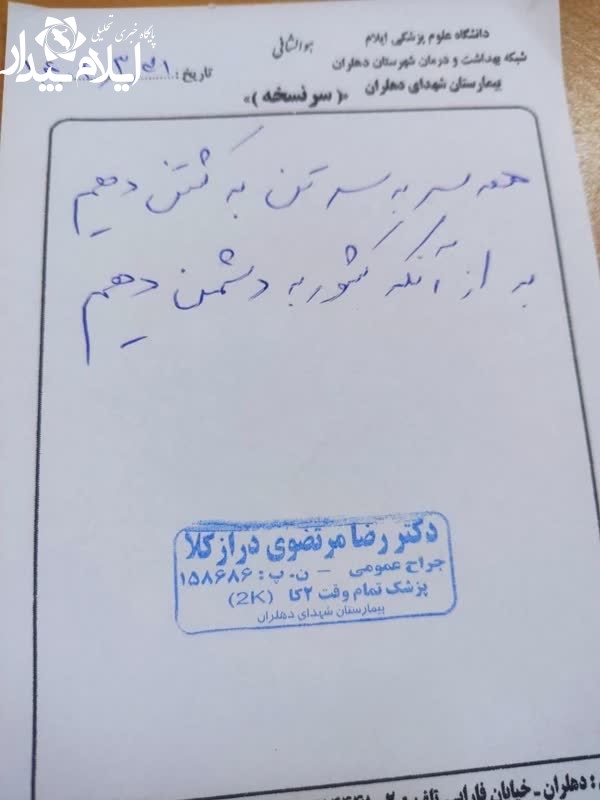 پایگاه خبری تحلیلی
ایلام بیدار
هوالشافی
دانشگاه علوم پزشکی ایلام
شبکه بهداشت و درمان شهرستان دهلران
بیمارستان شهدای دهلران
تاریخ:
«(سر نسخه)»
همه سر به سر تن به کشتن دهیم
به از آنکه کشور به دشمن دهیم
دکتر رضا مرتضوی درازکلا
جراح عمومی - ن.پ: ۱۵۸۶۸۶
پزشک تمام وقت ۲کا (2K)
بیمارستان شهدای دهلران
: دهلران - خیابان فارابی